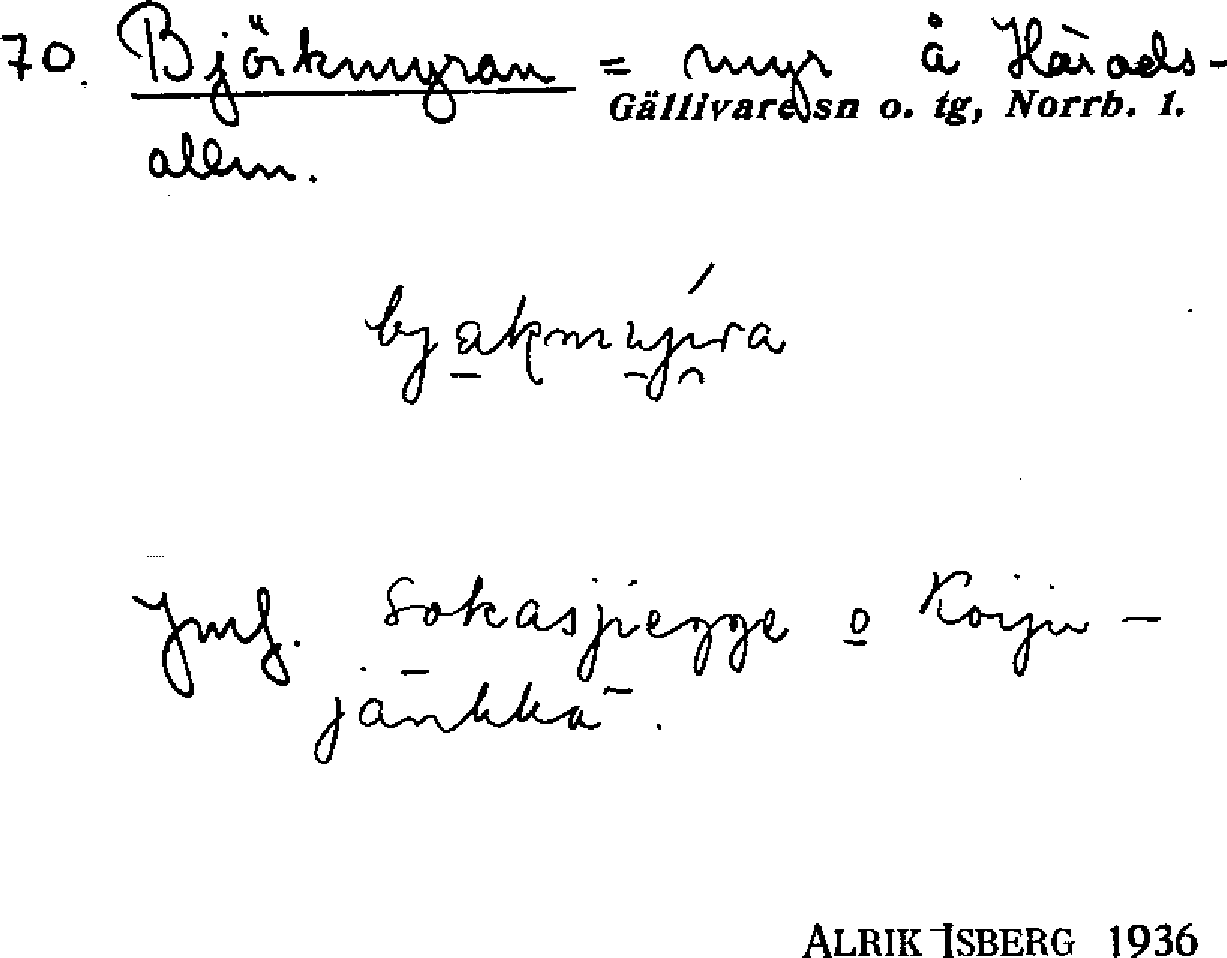 70. Björkmyran = myr å Härads-
Gällivare sn o. tg, Norrb. l.
allm.
bjakmyira
Jmf. Sokasjiegge o Koiju-
jänkkä.
ALRIK ISBERG 1936